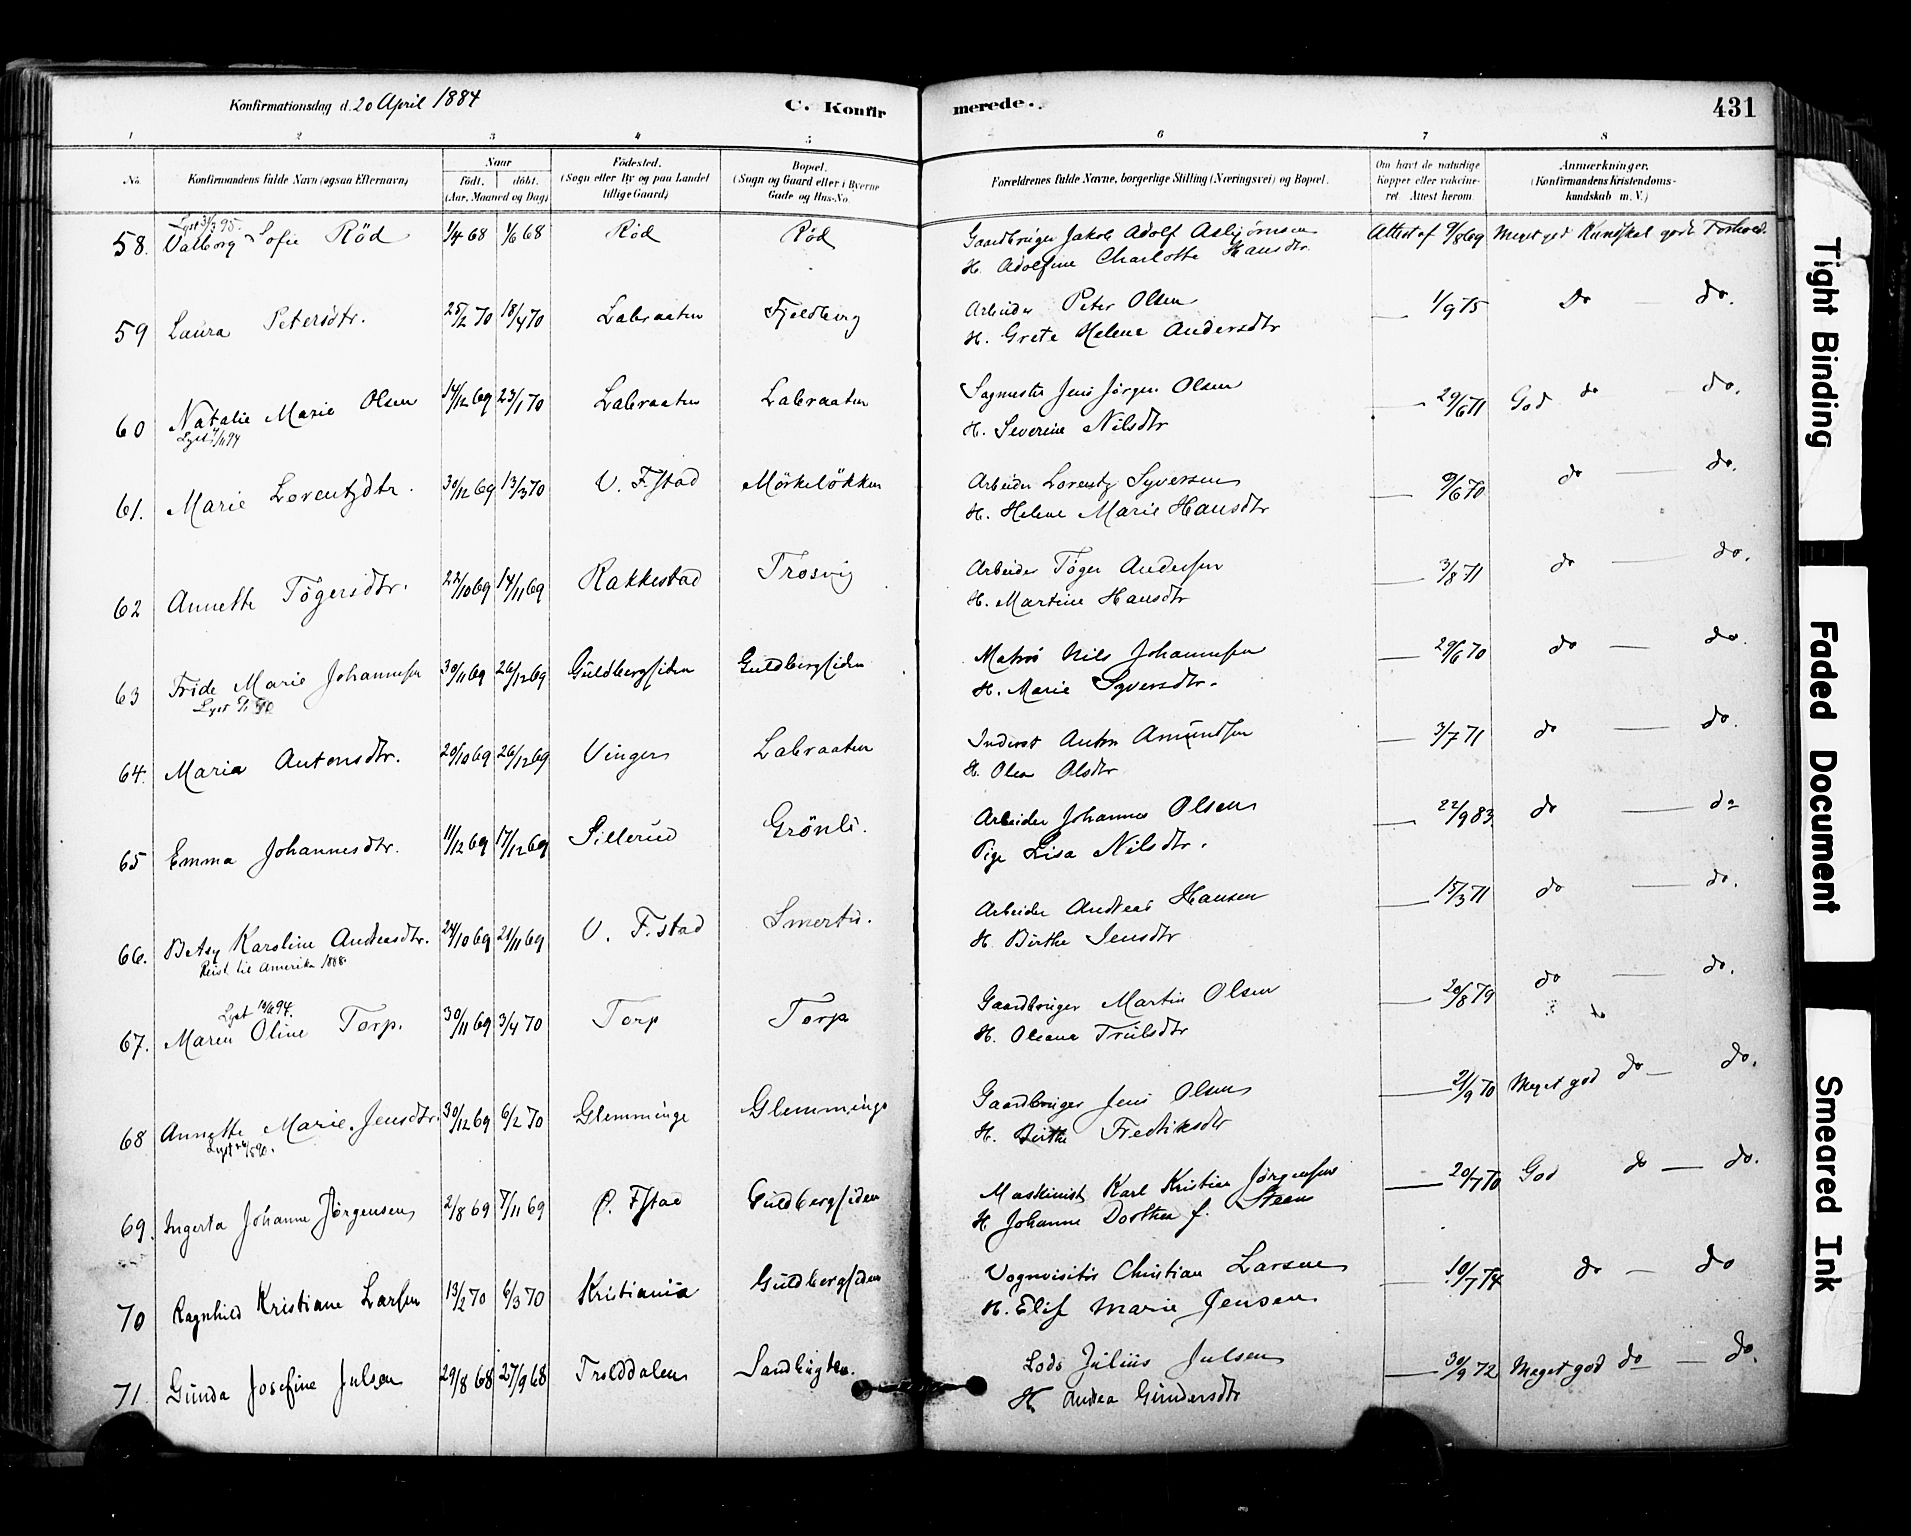 Konfirmationsdag d. 20 April 1884
C. Konfir
merede.
431
1 2 3 4 5 6 7 8
No.
Konfirmandens fulde Navn (ogsaa Efternavn)
Naar
Födt. döbt.
(Aar, Maaned og Dag)
Födested.
(Sogn eller By og paa Landet
tillige Gaard)
Bopæl.
(Sogn og Gaard eller i Byerne
Gade og Hus-No.
Forældrenes fulde Navne, borgerlige Stilling (Næringsvei) og Bopæl.
Om havt de naturlige
Kopper eller vakcine-
ret Attest herom.
Anmærkninger.
(Konfirmandens Kristendoms-
kundskab m. V.)
Lyst 31/3 95.
58. Valborg Sofie Röd 1/4 68 1/6 68 Röd Röd Gaardbruger Jakob Adolf Asbjörnsen Attest af 9/8 69 Meget god Kundskab god Forhold.
H. Adolfine Charlotte Hansdtr.
59 Laura Petersdtr. 25/2 70 18/4 70 Labraaten Fjeldberg Arbeider Peter Olsen — 1/9 75 Do — do.
H. Grete Helene Andersdtr
60 Natalie Marie Olsen 14/12 69 23/1 70 Labraaten Labraaten Sagmester Jens Jörgen Olsen — 29/6 71 God do — do.
Lyst /11 94
H. Severine Nilsdtr
61. Marie Lorentzdtr. 30/12 69 13/3 70 V. F.stad Mörkelökken Arbeider Lorentz Syversen — 9/6 70 do — do.
H. Helene Marie Hansdtr
62 Annette Tögersdtr. 22/10 69 14/11 69 Rakkestad Trosvig Arbeider Töger Andersen — 3/8 71 do — do.
H. Martine Hansdtr
63 Fride Marie Johannesen 30/11 69 26/12 69 Guldbergsiden Guldbergsiden Matros Nils Johannesen — 29/6 70 do — do.
Lyst
H. Marie Syversdtr.
64. Maria Antonsdtr. 20/10 69 26/12 69 Vinger Labraaten Inderst Anton Amundsen — 3/7 71 do — do.
H. Olea Olsdtr
65 Emma Johannesdtr. 11/12 69 17/12 69 Sillerud Grönli. Arbeider Johannes Olsen — 22/9 83. do — do
Pige Lisa Nilsdtr.
66. Betsy Karoline Andreasdtr. 24/10 69 21/11 69 V. F.stad Smertu. Arbeider Andreas Hansen — 15/3 71 do — do.
Reist til Amerika 1888.
H. Birthe Jensdtr
Lyst 10/6 94.
67. Maren Oline Torp. 30/11 69 3/4 70 Torp Torp Gaardbruger Martin Olsen — 20/8 79 do — do.
H. Oleana Trulsdtr
68 Annette Marie Jensdtr. 30/12 69 6/2 70 Glemminge Glemminge Gaardbruger Jens Olsen — 21/9 70 Meget god do — do.
Lyst /5 90.
H. Birthe Fredriksdtr
69. Ingerta Johanne Jörgensen 2/8 69 7/11 69 Ö. F.stad Guldbergsiden Maskinist Karl Kristian Jörgensen — 20/7 70 God do — do.
H Johanne Dorthea f. Steen
70 Ragnhild Kristiane Larsen 13/2 70 6/3 70 Kristiania Guldbergsiden Vognvisitör Christian Larsen — 10/7 74 do — do
H. Elise Marie Jensen
71. Gunda Josefine Julsen 29/8 68 27/9 68 Trolddalen Sandhugten. Lods Julius Julsen — 30/9 72 Meget god do — do.
H Andrea Gundersdtr
Tight Binding
Faded Document
Smeared Ink